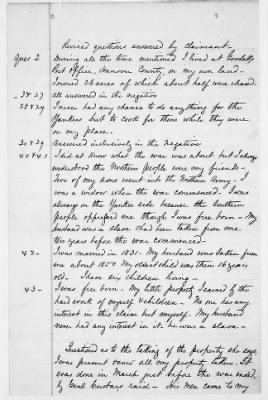 Revised questions answered by claimant.
Ques 2 During all the time mentioned I lived at Goodalls
Post Office, Hanover County, on my own land -
I owned 26 acres of which about half were cleared.
3 & 27 all answered in the negative
28 & 29 I never had any chance to do anything for the
Yankees but to cook for them while they were
on my place.
30 & 39 Answered inclusively, in the negative
40 & 41 I did not know what the war was about but I always
understood the Northern people were my friends -
Two of my sons went into the Northern Army - I
was a widow when the war commenced. I was
always on the Yankee side because the Southern
People oppressed me though I was free born - My
husband was a slave & had been taken from me
ten years before the war commenced -
42 - I was married in 1831. My husband was taken from
me about 1850 My oldest child was then 16 years
old - I have six children living -
43 - I was free born. My little property I earned by the
hard work of myself & children - No one has any
interest in this claim but myself. My husband
never had any interest in it. he was a slave -
Questioned as to the taking of the property she says
I was present & saw all my property taken. It
was done in March just before the war ended,
by Genl Custars raid - His men came to my